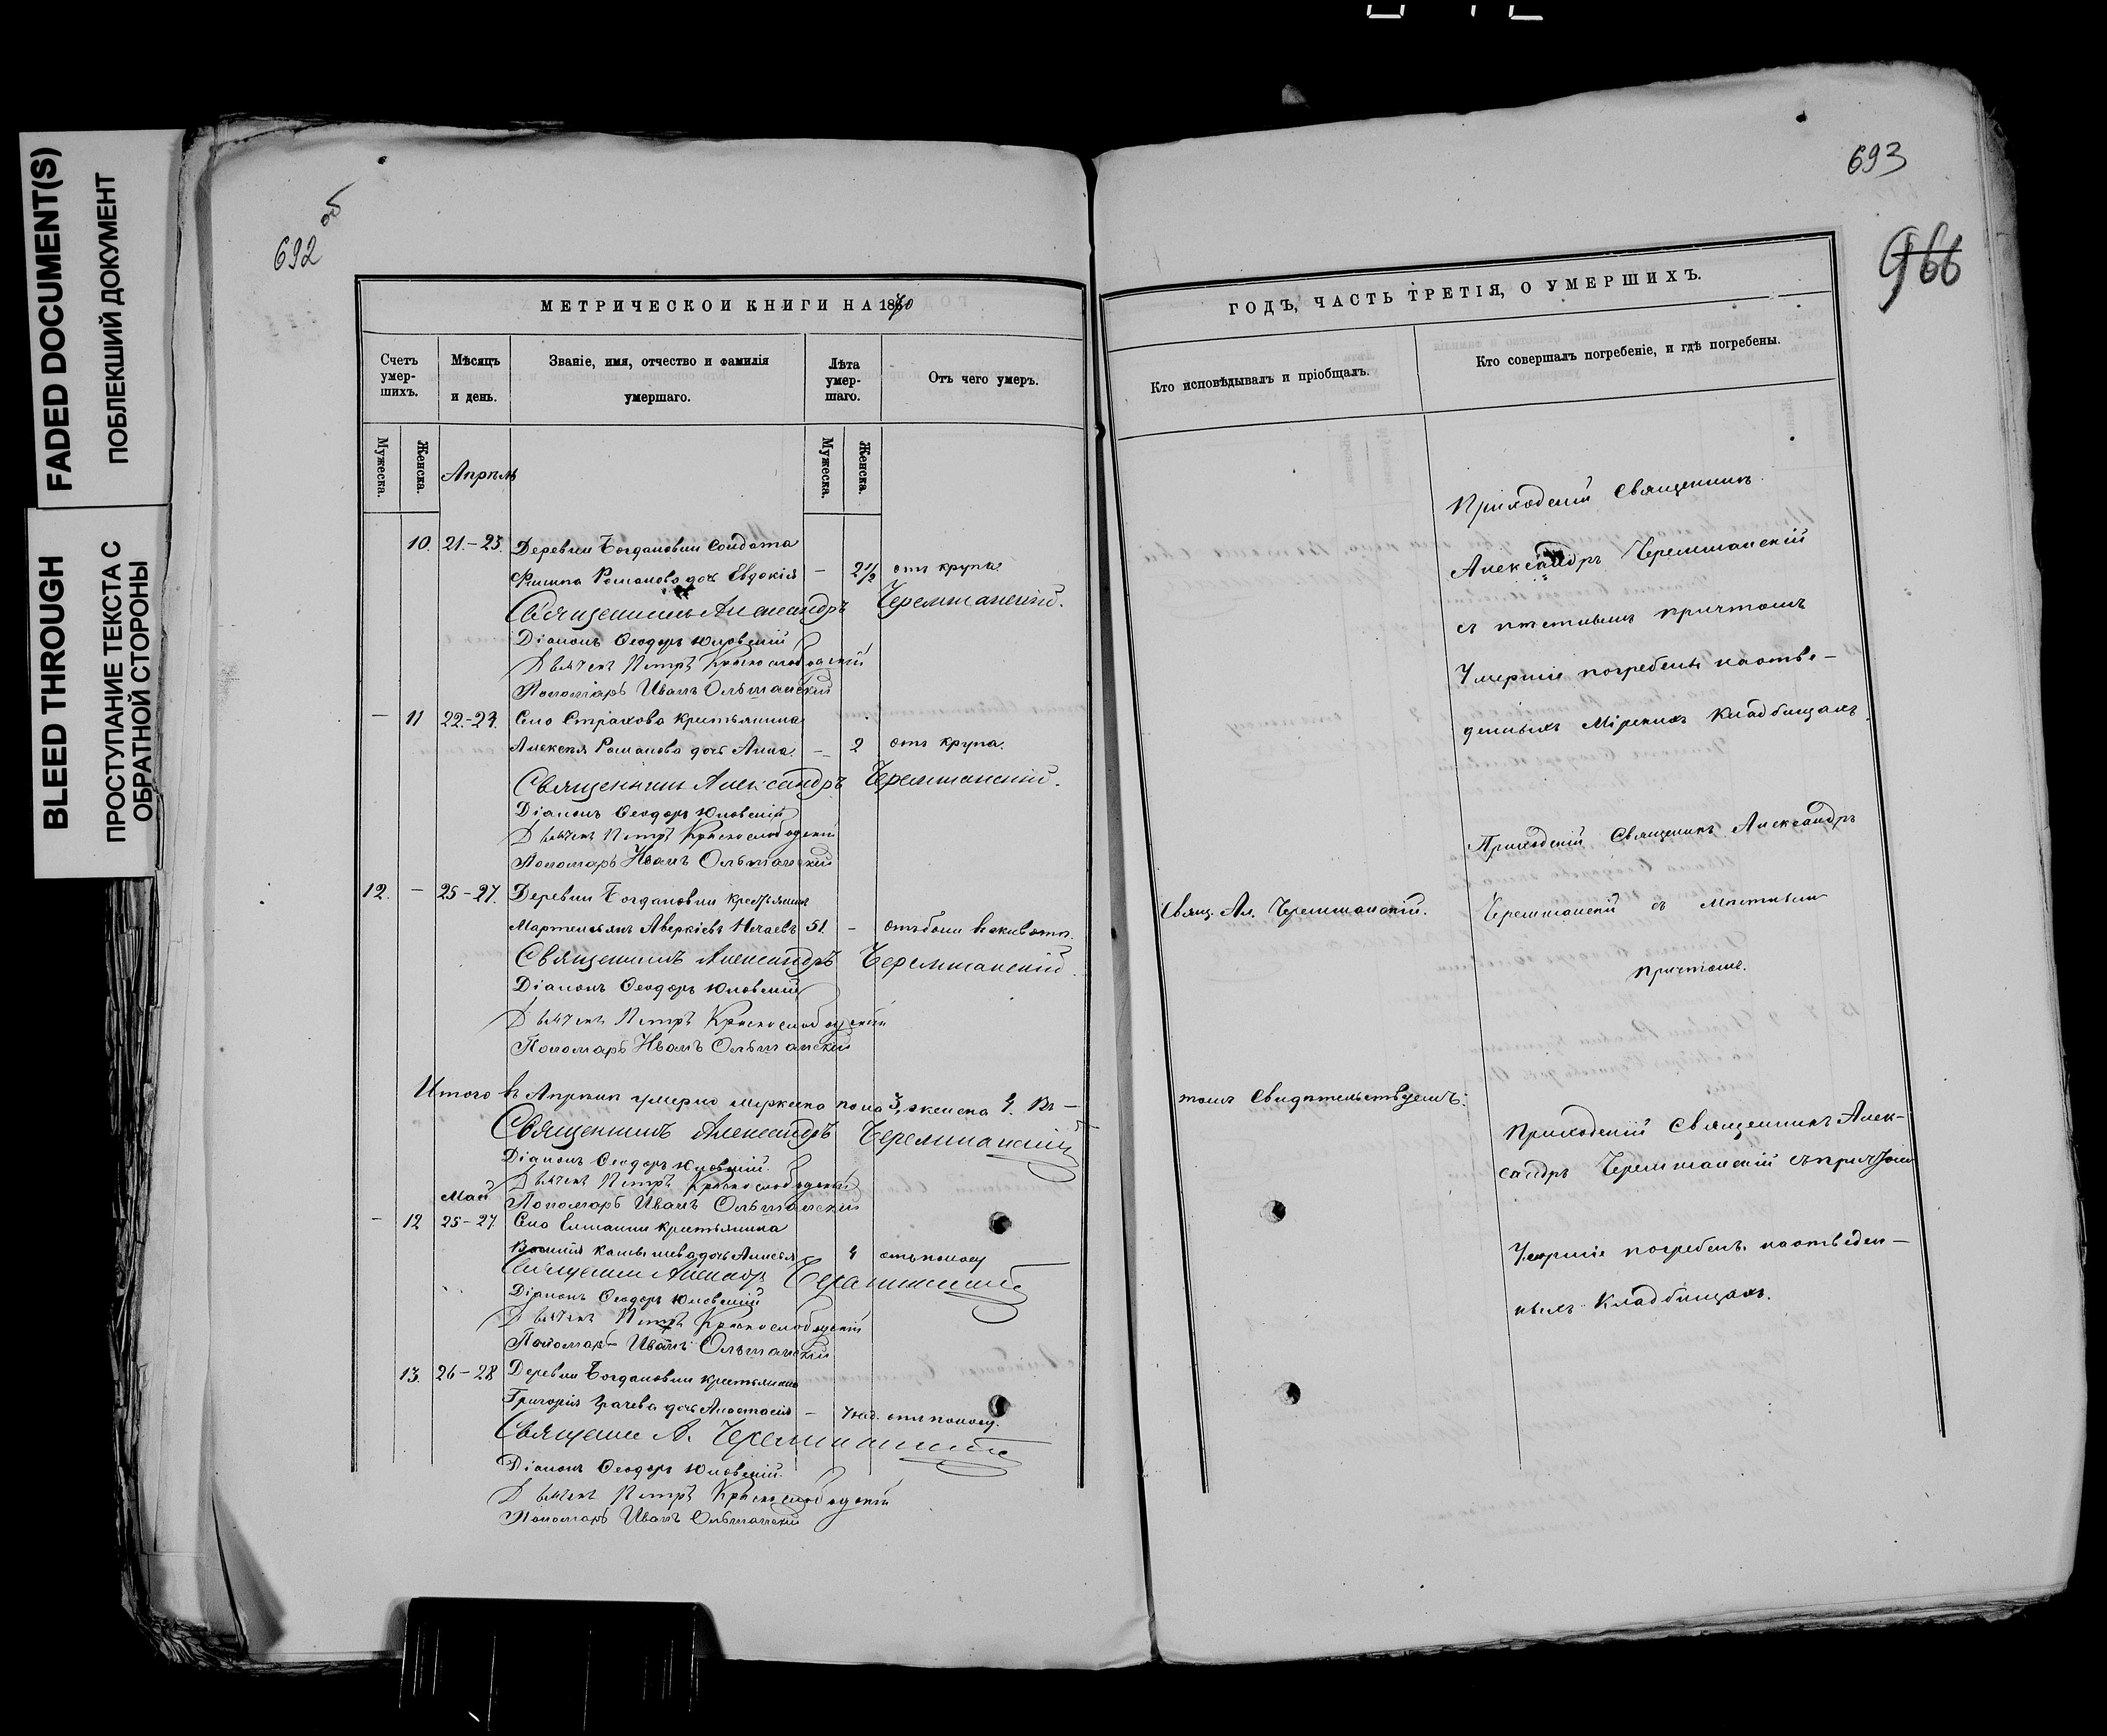 FADED DOCUMENT(S)
ПОБЛЕКШИЙ ДОКУМЕНТ
BLEED THROUGH
ПРОСТУПАНИЕ ТЕКСТА С
ОБРАТНОЙ СТОРОНЫ
692 об
МЕТРИЧЕСКОЙ КНИГИ НА 1870
Счетъ умер-шихъ.
Мѣсяцъ и день.
Званіе, имя, отчество и фамилія умершаго.
Лѣта умер-шаго.
Отъ чего умеръ.
Мужеска.
Женска.
Мужеска.
Женска.
Апрѣль
10. 21.-23. Деревни Богдановки солдата
Филипа Романова дочь Евдокія - 2 1/2 отъ крупа.
Священникъ Александръ Черемшанскій.
Діаконъ Ѳеодоръ Юловскій
Дьячекъ Петръ Краснослободскій
Пономарь Иванъ Ольшанскій
- 11 22.-24. Село Страхова крестьянина
Алексѣя Романова дочь Анна. - 2 отъ крупа.
Священникъ Александръ Черемшанскій.
Діаконъ Ѳеодоръ Юловскій
Дьячекъ Петръ Краснослободскій
Пономарь Иванъ Ольшанскій
12. - 25-27. Деревни Богдановки крестьянинъ
Аверкіевъ Нечаевъ 51. - отъ боли въ животѣ.
Священникъ Александръ Черемшанскій
Діаконъ Ѳеодоръ Юловскій
Дьячекъ Петръ Краснослободскій
Пономарь Иванъ Ольшанскій
Итого въ Апрѣлѣ умерло мужеска пола 3, женска 4. Въ -
Священникъ Александръ Черемшанскій
Діаконъ Ѳеодоръ Юловскій.
Дьячекъ Петръ Краснослободскій
Май Пономарь Иванъ Ольшанскій
- 12 25-27 Село крестьянина
дочь 4 отъ поносу
Священник Черемшанскій
Діаконъ Ѳеодоръ Юловскій
Дьячекъ Петръ Краснослободскій
Пономарь Иванъ Ольшанскій
13. 26-28 Деревни Богдановки крестьянина
Григорія Грачева дочь Анастасія - 7 нед. отъ поносу.
Священ А. Черемшанскій
Діаконъ Ѳеодоръ Юловскій.
Дьячекъ Петръ Краснослободскій
Пономарь Иванъ Ольшанскій
693
966
ГОДЪ, ЧАСТЬ ТРЕТІЯ, О УМЕРШИХЪ.
Кто исповѣдывалъ и пріобщалъ.
Кто совершалъ погребеніе, и гдѣ погребены.
Приходскій Священникъ
Александръ Черемшанскій
съ причтомъ
Умершіе погребены на отве-
денныхъ Мірскихъ Кладбищахъ.
Приходскій Священникъ Александръ
Свящ. Ал. Черемшанскій. Черемшанскій съ мѣстнымъ
причтомъ.
томъ свидѣтельствуемъ:
Приходскій Священникъ Алек-
сандръ Черемшанскій съ причтомъ
Умершіе погребены на отведен-
ныхъ Кладбищахъ.